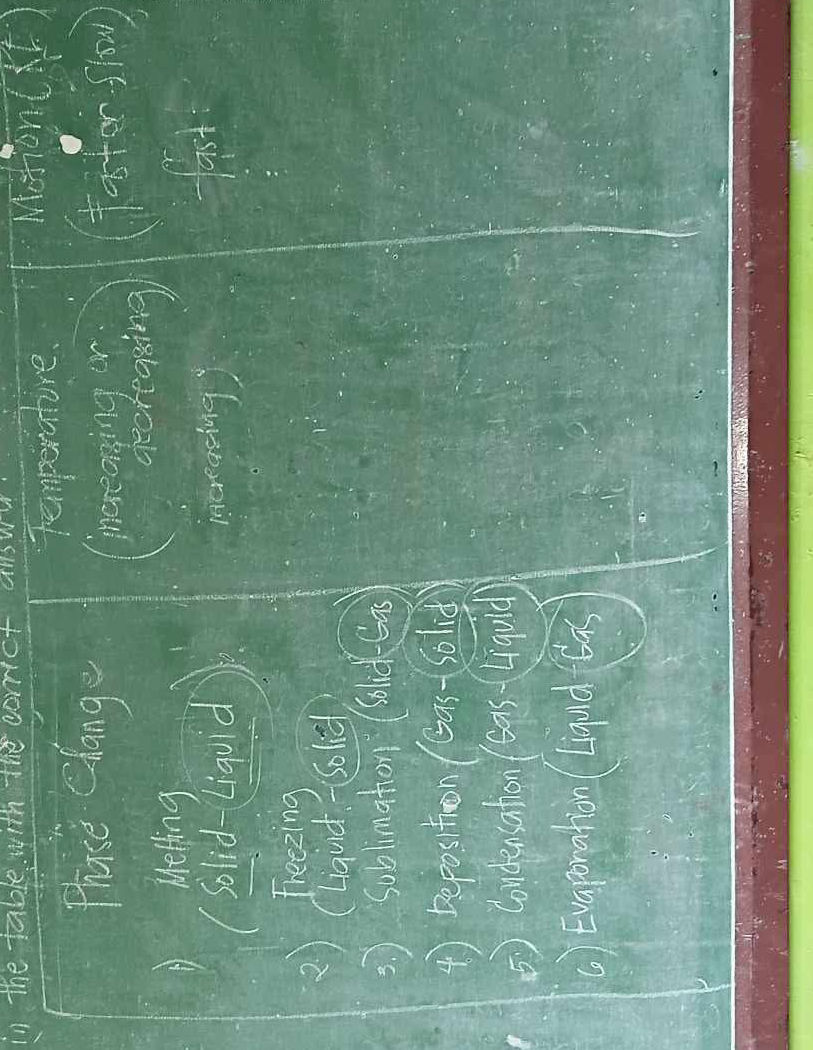 in the table with the correct answer.
Phase Change
Temperature.
(increasing or
decreasing)
Motion (KE)
(Faster-Slow)
1) Melting
(Solid-Liquid)
increasing
fast
2.) Freezing
(Liquid-Solid)
3.) Sublimation (Solid-Gas)
4.) Deposition (Gas-Solid)
5.) Condensation (Gas-Liquid)
6.) Evaporation (Liquid-Gas)